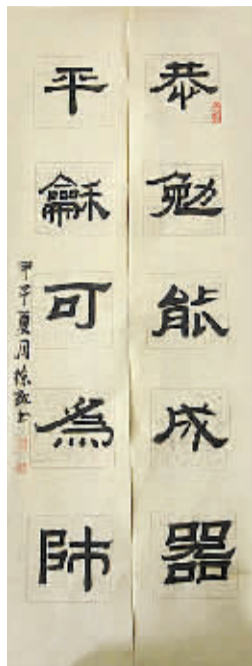 恭勉能成器
平龢可為師
夏月